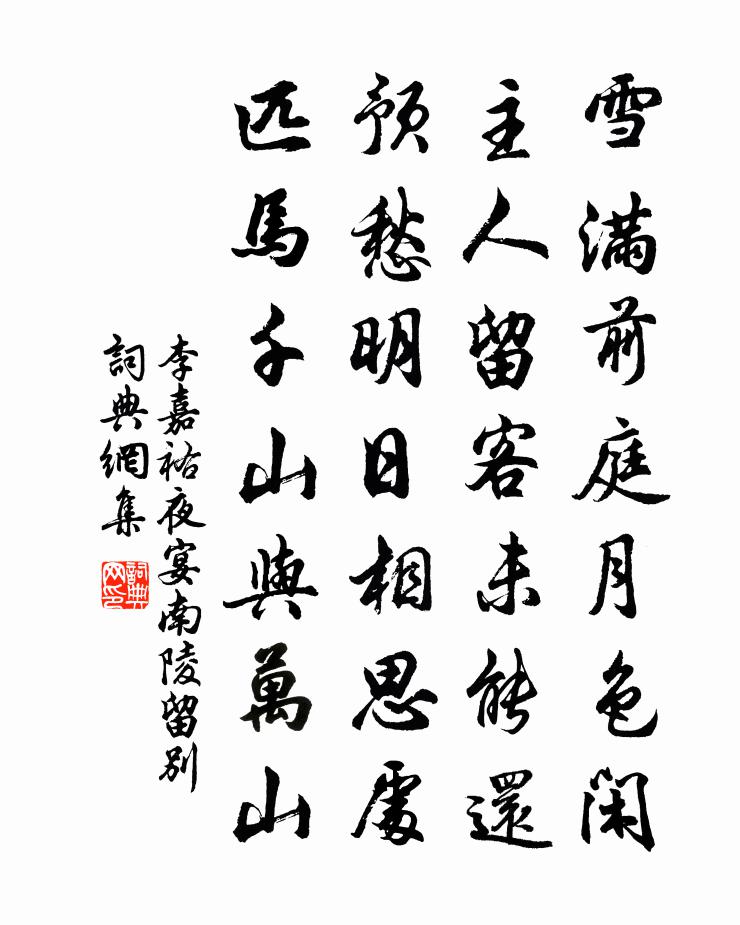 雪滿前庭月色閑
主人留客未能還
預愁明日相思處
匹馬千山與萬山
李嘉祐夜宴南陵留別
詞典網集
詞典网印